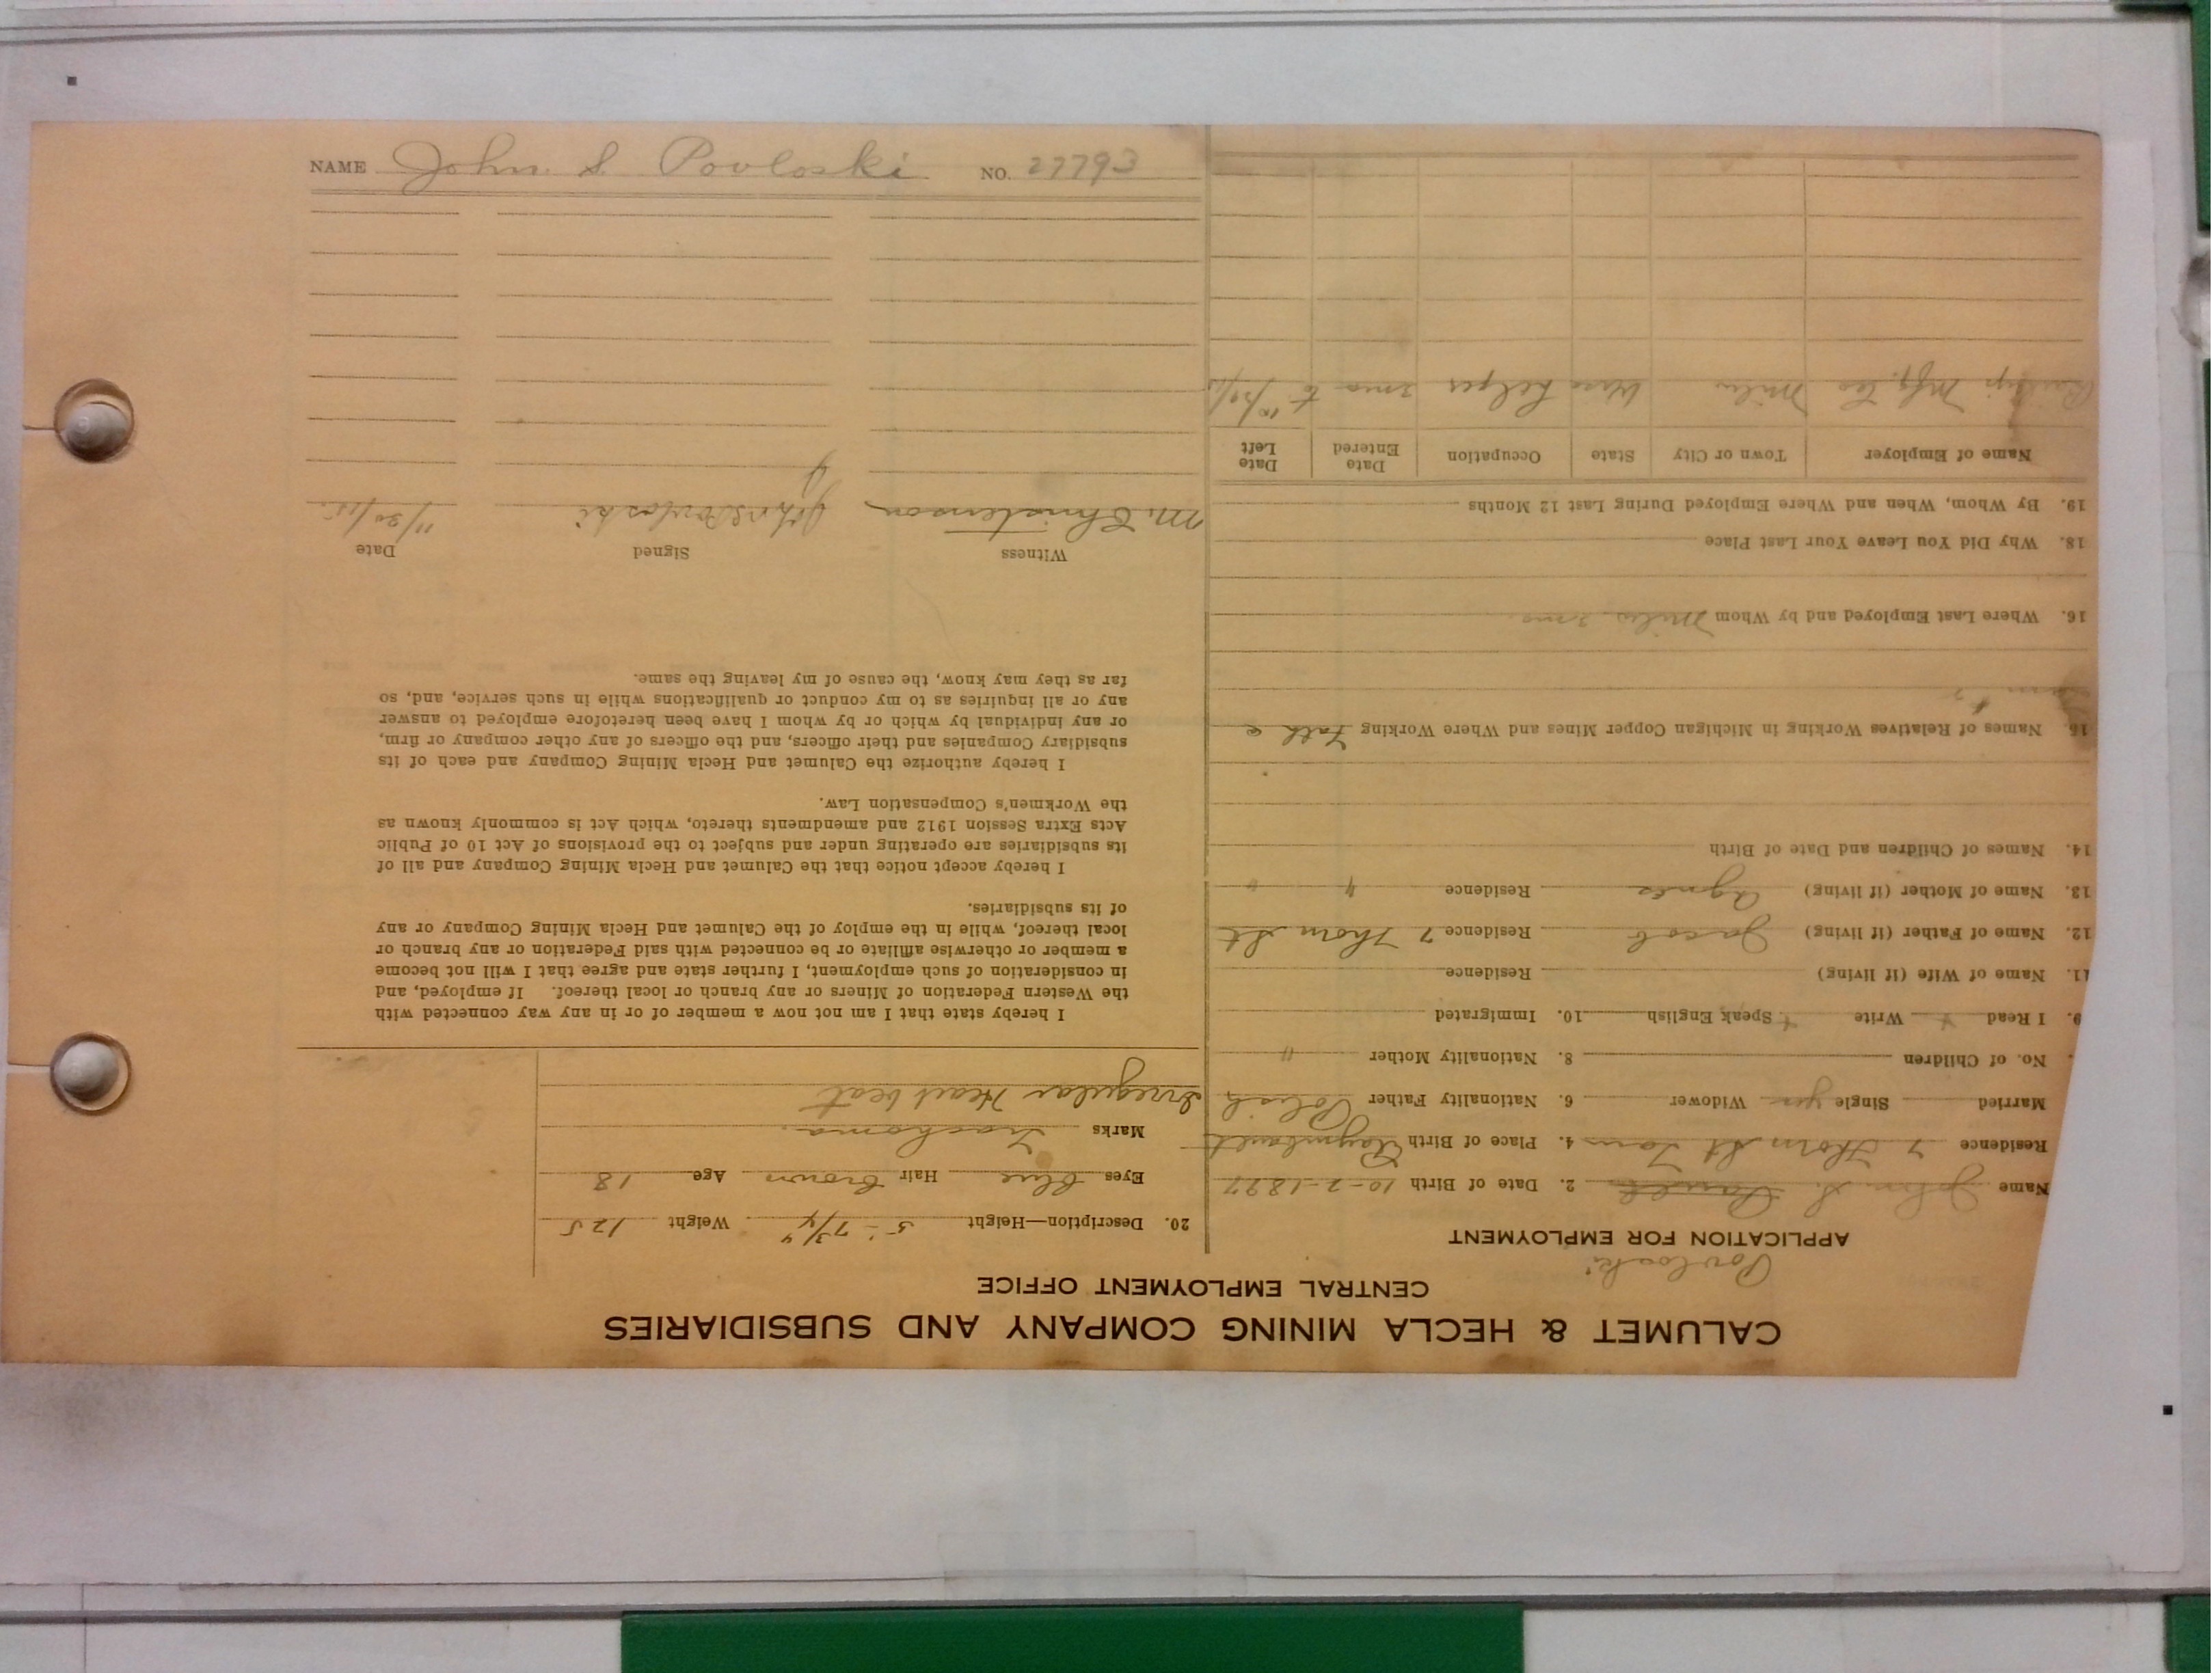 NAME John S. Povloski NO. 27793
CALUMET & HECLA MINING COMPANY AND SUBSIDIARIES
CENTRAL EMPLOYMENT OFFICE
Povloski
APPLICATION FOR EMPLOYMENT
Name John S. 2. Date of Birth 10-2-1897
Residence 7 Thorn St Tam 4. Place of Birth
Married Single yes Widower 6. Nationality Father Polish
No. of Children 8. Nationality Mother "
9. I Read Write Speak English 10. Immigrated
11. Name of Wife (if living) Residence
12. Name of Father (if living) Jacob Residence 7 Thorn St
13. Name of Mother (if living) Agnes Residence " "
14. Names of Children and Date of Birth
15. Names of Relatives Working in Michigan Copper Mines and Where Working
16. Where Last Employed and by Whom
18. Why Did You Leave Your Last Place
19. By Whom, When and Where Employed During Last 12 Months
Name of Employer Town or City State Occupation Date Entered Date Left
Mfg. Co helper to
20. Description—Height 5-7 3/4 Weight 125
Eyes Blue Hair Brown Age 18
Marks Trachoma.
Irregular Heart beat
I hereby state that I am not now a member of or in any way connected with
the Western Federation of Miners or any branch or local thereof. If employed, and
in consideration of such employment, I further state and agree that I will not become
a member or otherwise affiliate or be connected with said Federation or any branch or
local thereof, while in the employ of the Calumet and Hecla Mining Company or any
of its subsidiaries.
I hereby accept notice that the Calumet and Hecla Mining Company and all of
its subsidiaries are operating under and subject to the provisions of Act 10 of Public
Acts Extra Session 1912 and amendments thereto, which Act is commonly known as
the Workmen's Compensation Law.
I hereby authorize the Calumet and Hecla Mining Company and each of its
subsidiary Companies and their officers, and the officers of any other company or firm,
or any individual by which or by whom I have been heretofore employed to answer
any or all inquiries as to my conduct or qualifications while in such service, and, so
far as they may know, the cause of my leaving the same.
Witness Signed Date
M. Christenson John S Povloski 11/30/15.